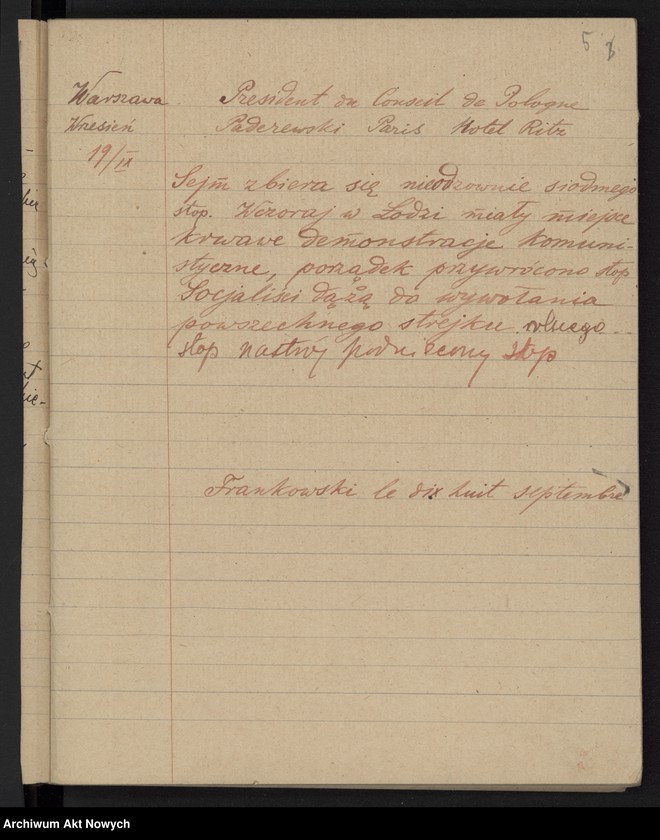 5 8
Warszawa
Wrzesień
19/IX
President du Conseil de Pologne
Paderewski Paris Hotel Ritz
Sejm zbiera się nieodzownie siodmego
stop. Wczoraj w Łodzi miały miejsce
krwawe demonstracje komuni-
styczne, porządek przywrócono stop
Socjaliści dążą do wywołania
powszechnego strejku rolnego
stop nastrój podniecony stop
Frankowski le dix huit septembre
Archiwum Akt Nowych